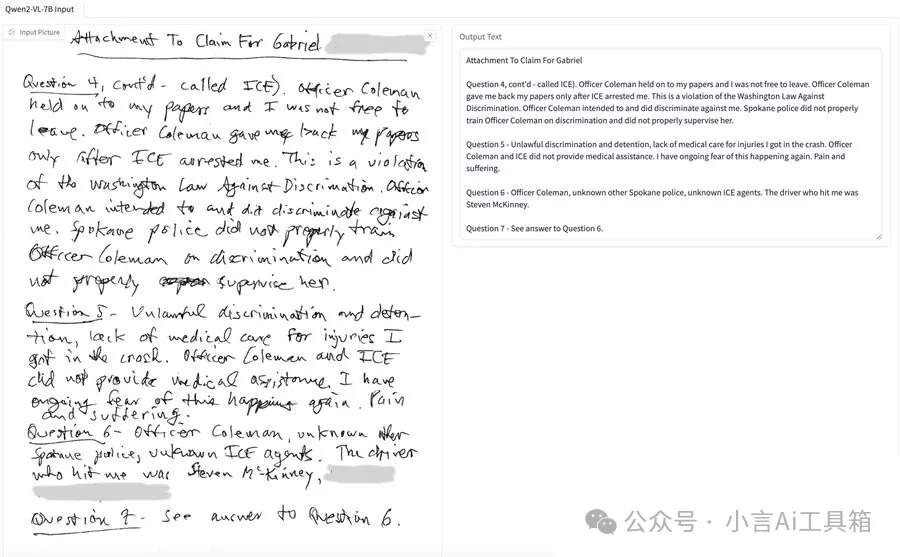 Qwen2-VL-7B Input
Input Picture
Attachment To Claim For Gabriel
Question 4, cont'd - called ICE). Officer Coleman
held on to my papers and I was not free to
leave. Officer Coleman gave me back my papers
only after ICE arrested me. This is a violation
of the Washington Law Against Discrimination. Officer
Coleman intended to and did discriminate against
me. Spokane police did not properly train
Officer Coleman on discrimination and did
not properly supervise her.
Question 5 - Unlawful discrimination and deten-
tion, lack of medical care for injuries I
got in the crash. Officer Coleman and ICE
did not provide medical assistance. I have
ongoing fear of this happening again. Pain
and suffering.
Question 6 - Officer Coleman, unknown other
Spokane police, unknown ICE agents. The driver
who hit me was Steven McKinney,
Question 7 - See answer to Question 6.
Output Text
Attachment To Claim For Gabriel
Question 4, cont'd - called ICE). Officer Coleman held on to my papers and I was not free to leave. Officer Coleman
gave me back my papers only after ICE arrested me. This is a violation of the Washington Law Against
Discrimination. Officer Coleman intended to and did discriminate against me. Spokane police did not properly
train Officer Coleman on discrimination and did not properly supervise her.
Question 5 - Unlawful discrimination and detention, lack of medical care for injuries I got in the crash. Officer
Coleman and ICE did not provide medical assistance. I have ongoing fear of this happening again. Pain and
suffering.
Question 6 - Officer Coleman, unknown other Spokane police, unknown ICE agents. The driver who hit me was
Steven McKinney.
Question 7 - See answer to Question 6.
公众号 · 小言Ai工具箱